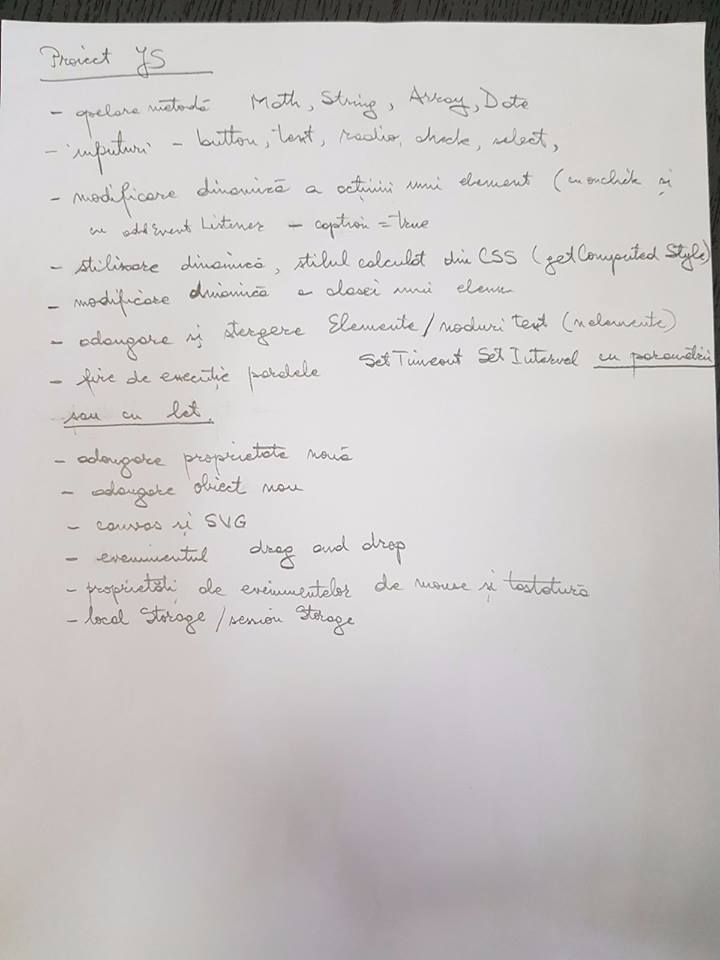 Proiect JS
- apelare metodă Math, String, Array, Date
- inputuri - button, text, radio, check, select,
- modificare dinamică a acțiunii unui element (cu onclick și
cu addEvent Listener - caption = true
- stilizare dinamică, stilul calculat din CSS (getComputed Style)
- modificare dinamică a clasei unui elem
- adaugare și ștergere Elemente/noduri text (n elemente)
- fire de execuție paralele SetTimeout SetInterval cu parametrii
sau cu let.
- adaugare proprietate nouă
- adaugare obiect nou
- canvas și SVG
- evenimentul drag and drop
- proprietăți de evenimentelor de mouse și tastatură
- local Storage/session Storage